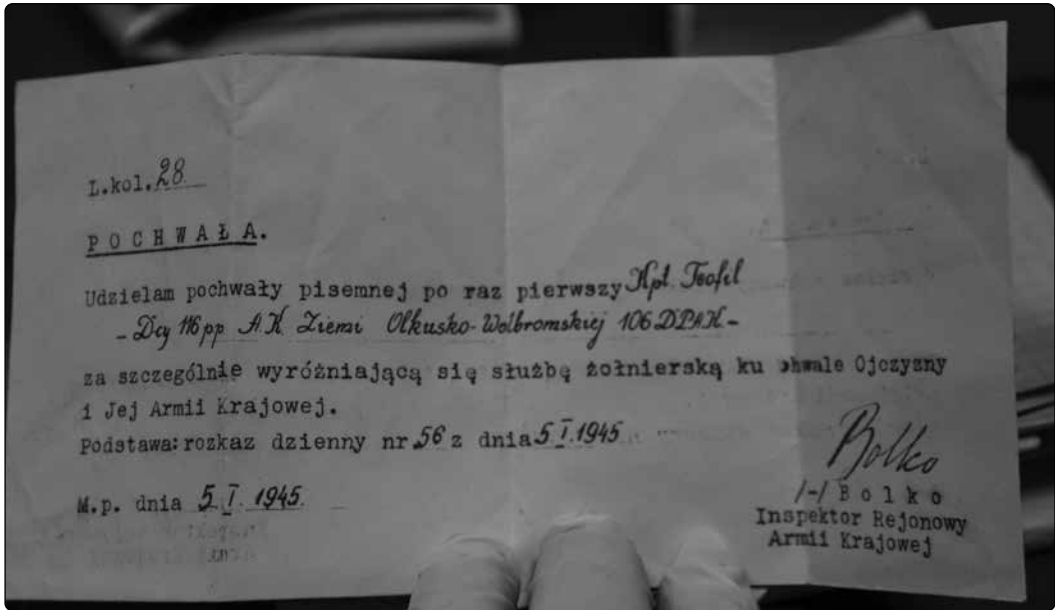 L.kol. 28
POCHWAŁA.
Udzielam pochwały pisemnej po raz pierwszy Kpt. Teofil
- Dcy 116 pp A.K Ziemi Olkusko-Wolbromskiej 106 DPAK -
za szczególnie wyróżniającą się służbę żołnierską ku chwale Ojczyzny
i Jej Armii Krajowej.
Podstawa: rozkaz dzienny nr 56 z dnia 5 I.1945
M.p. dnia 5.I. 1945.
Bolko
/-/ Bolko
Inspektor Rejonowy
Armii Krajowej